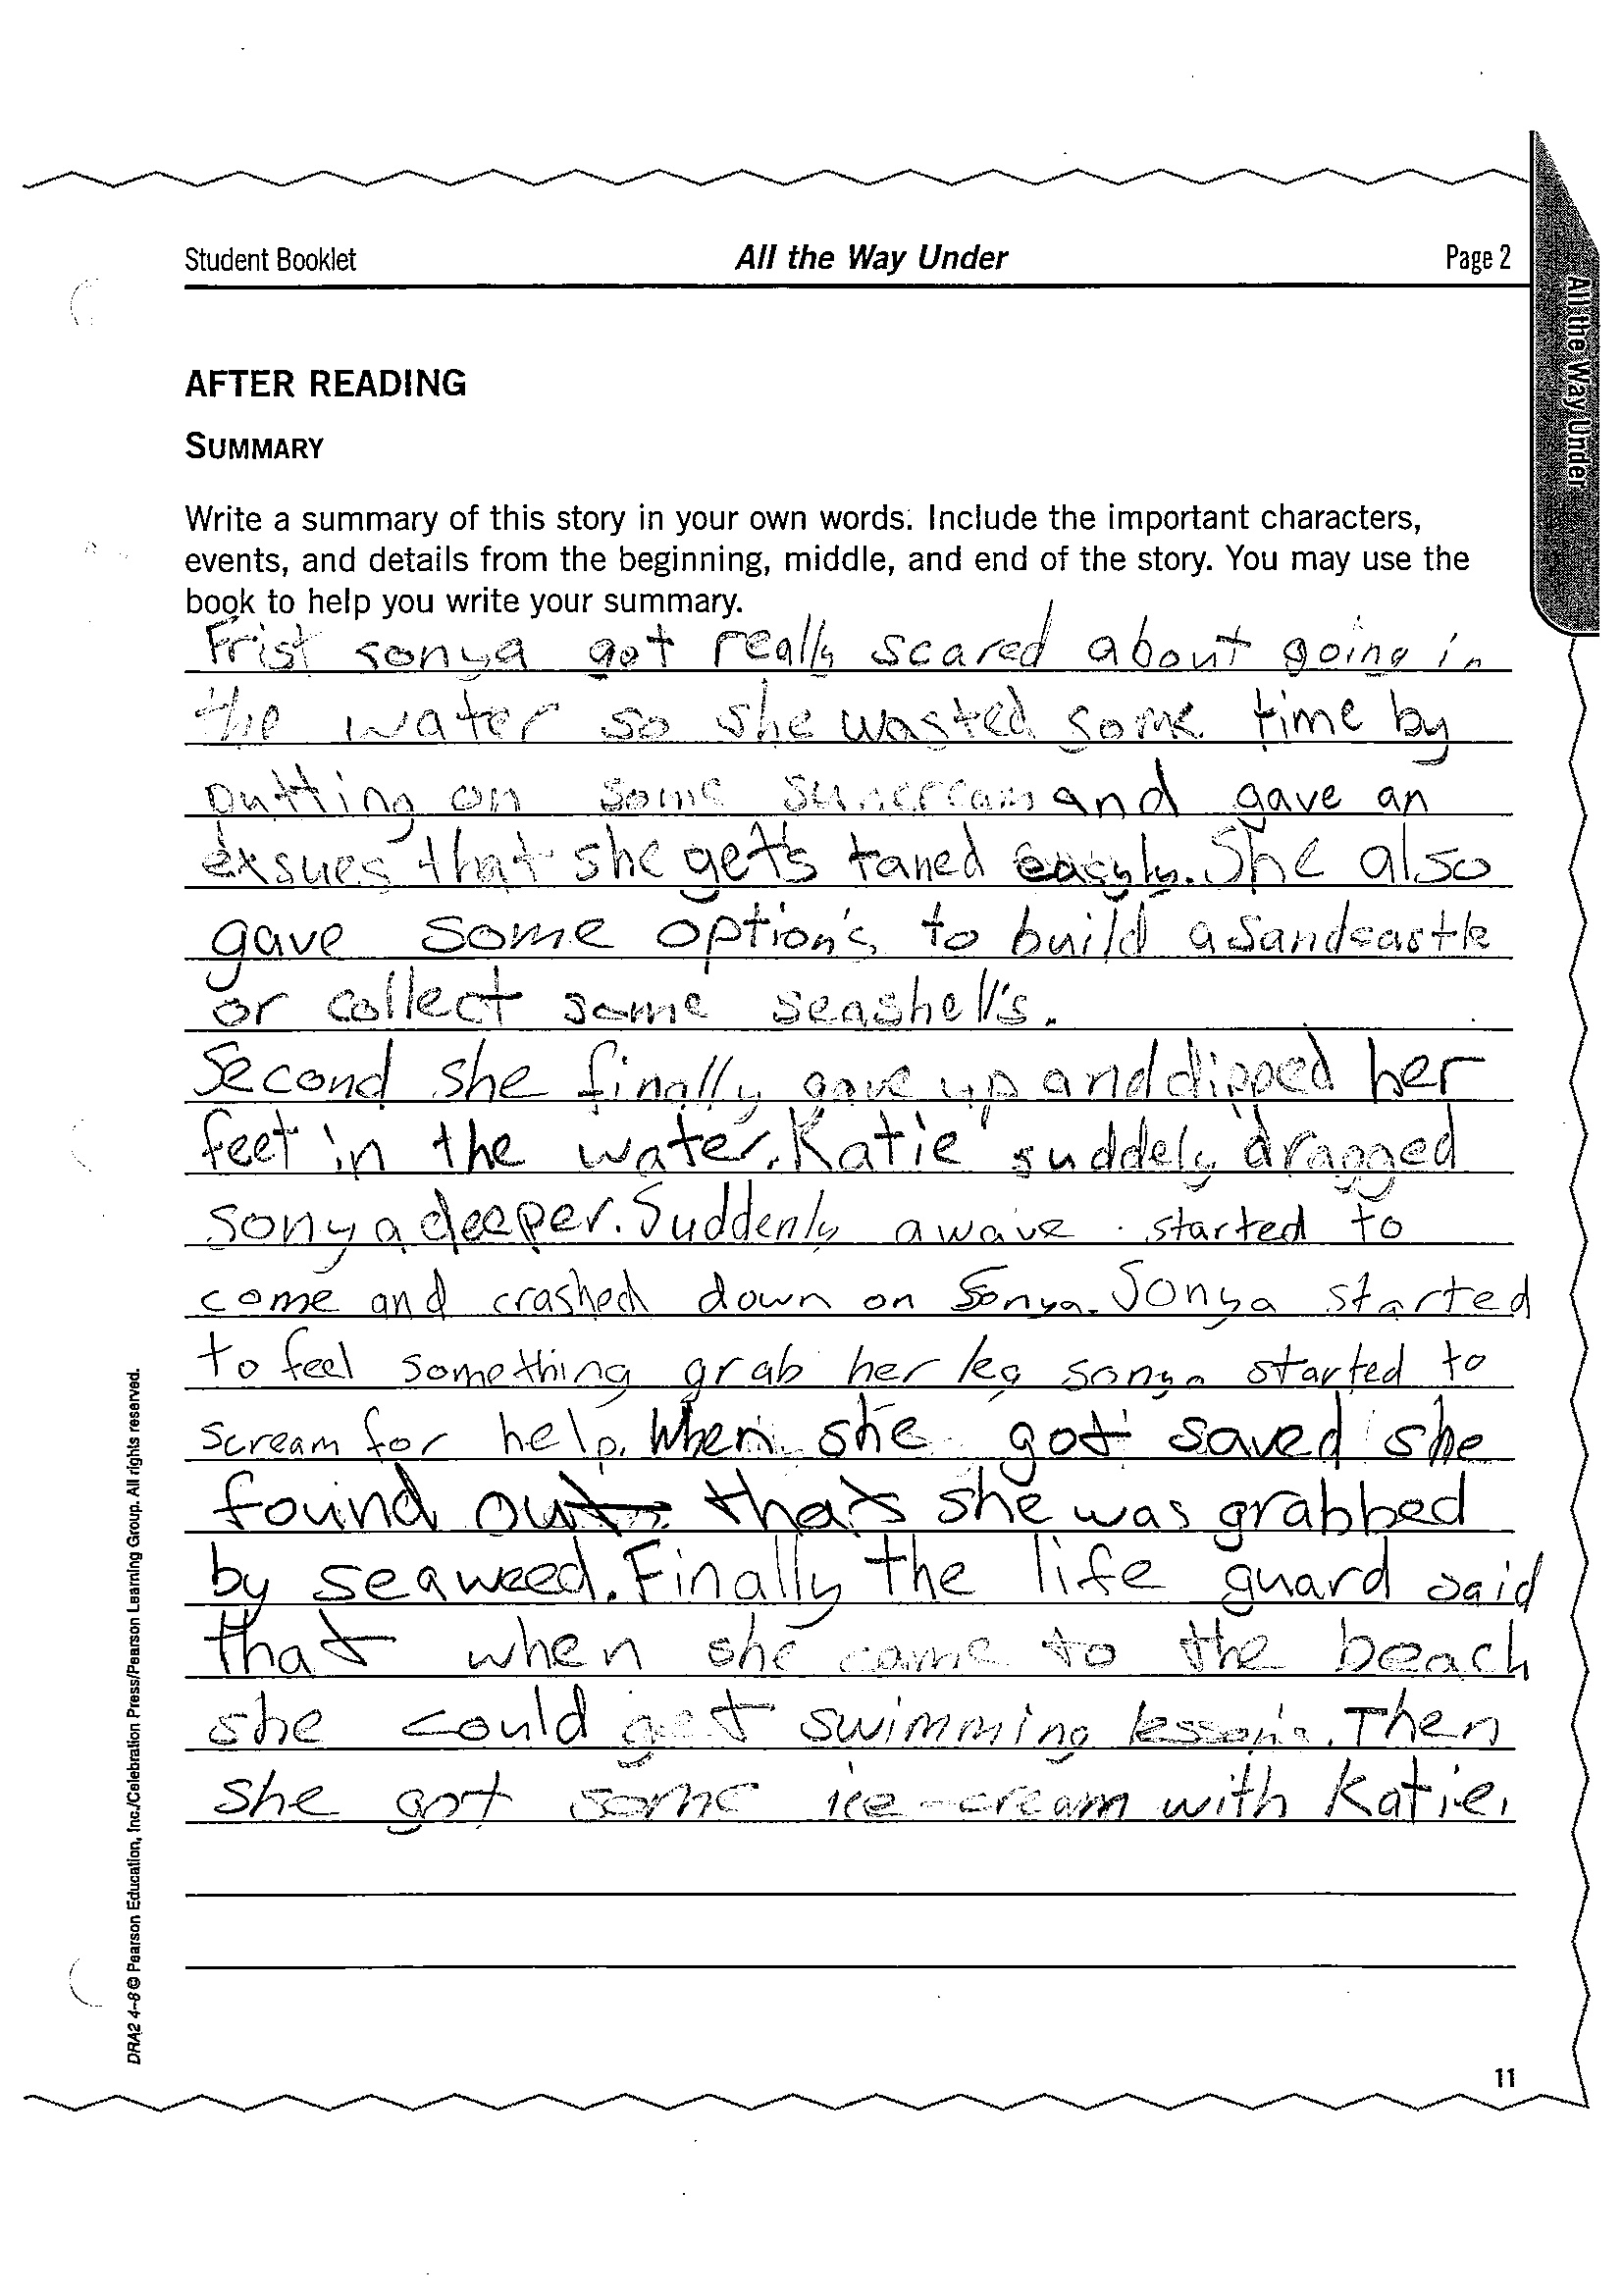 Student Booklet All the Way Under Page 2
All the Way Under
AFTER READING
SUMMARY
Write a summary of this story in your own words. Include the important characters,
events, and details from the beginning, middle, and end of the story. You may use the
book to help you write your summary.
Frist sonya got really scared about going in
the water so she wasted some time by
putting on some suncream and gave an
exsues that she get's taned easyly. She also
gave some option's to build a sandcastle
or collect some seashell's.
Second she finally gave up and dipped her
feet in the water. Katie suddely dragged
sonya deeper. Suddenly a wave started to
come and crashed down on Sonya. Sonya started
to feel something grab her leg sonya started to
scream for help. When she got saved she
found out that she was grabbed
by seaweed. Finally the life guard said
that when she came to the beach
she could get swimming lesson's. Then
she got some ice-cream with Katie.
DRA2 4–8 © Pearson Education, Inc./Celebration Press/Pearson Learning Group. All rights reserved.
11